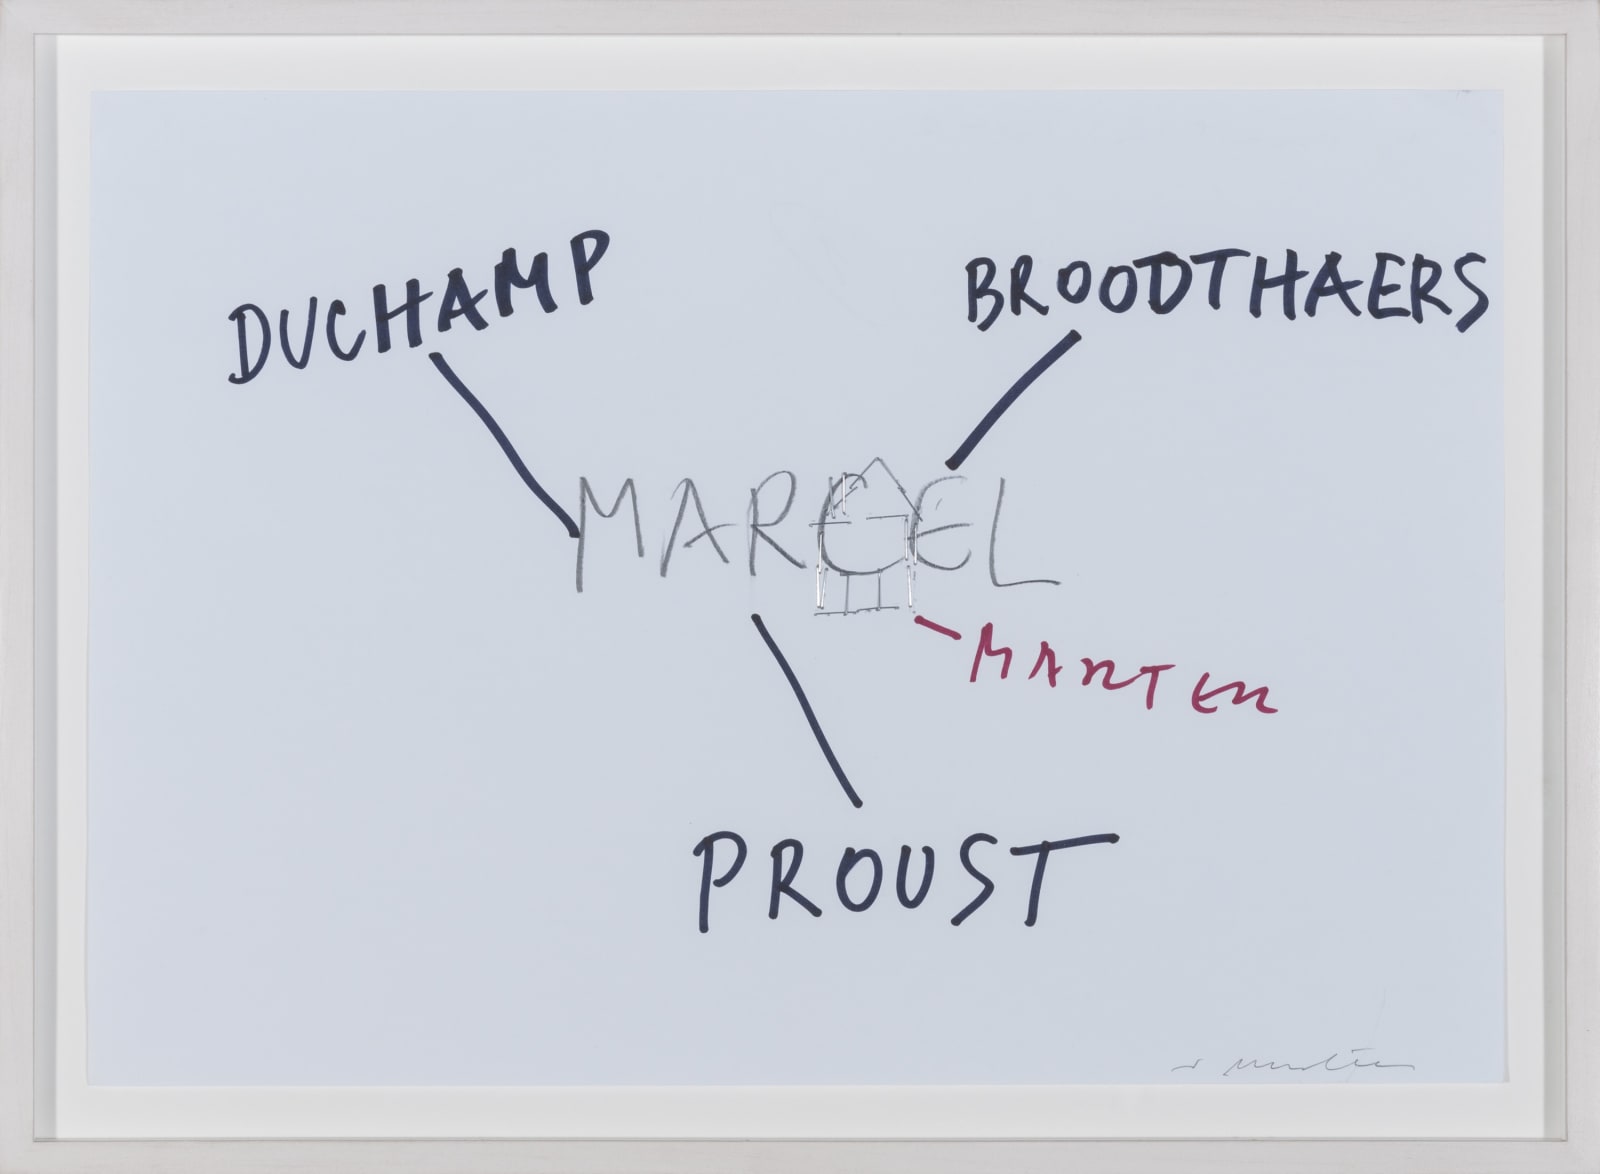 DUCHAMP
BROODTHAERS
MARCEL
MARTEN
PROUST